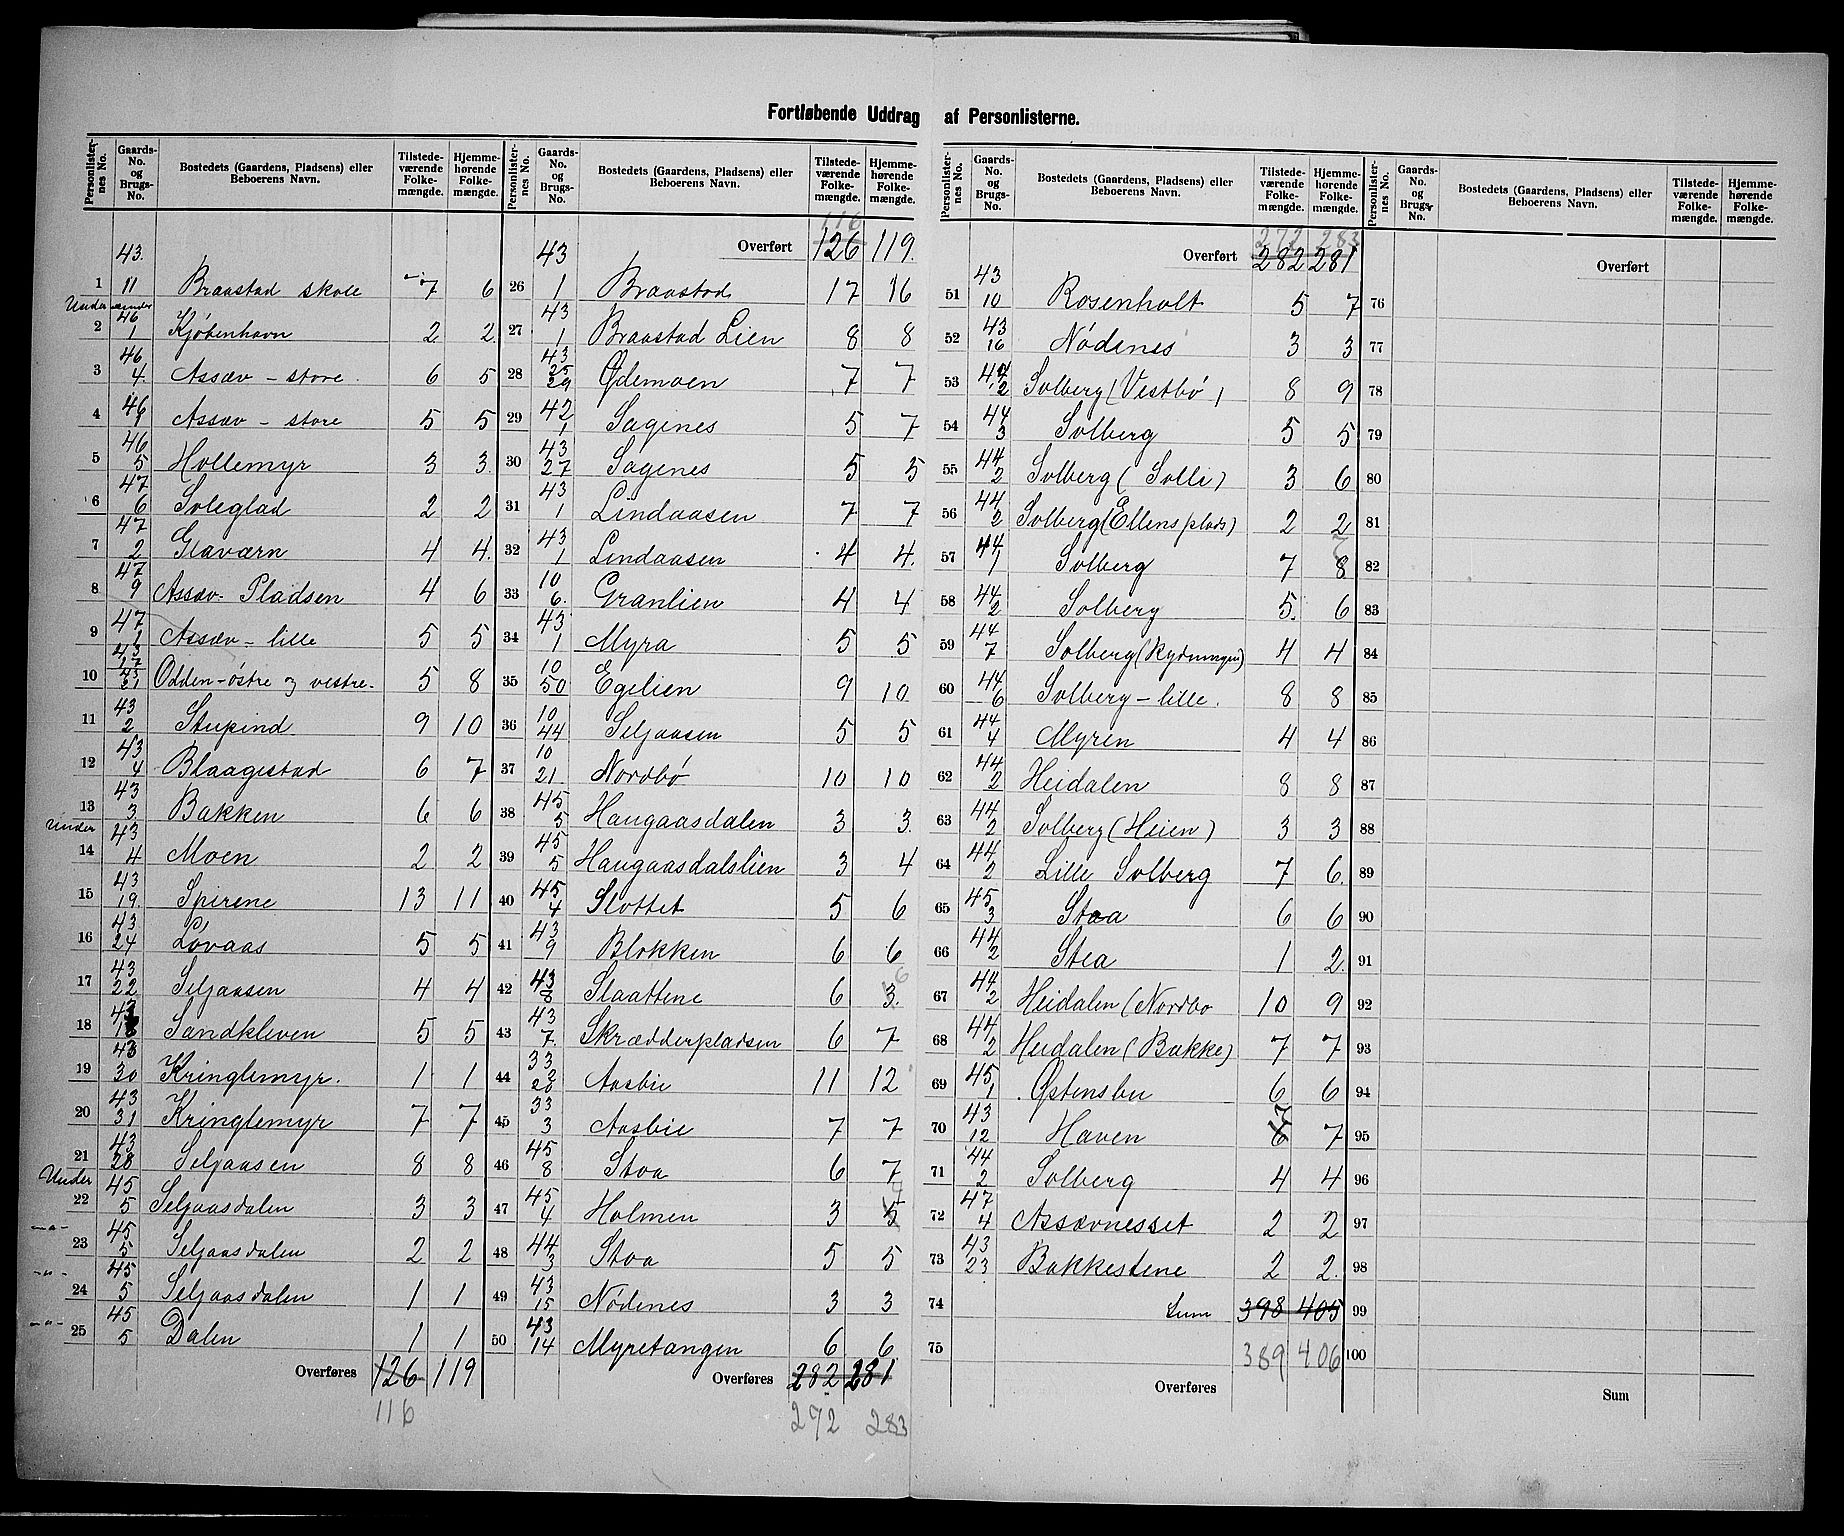 Fortløbende Uddrag af Personlisterne.
Personlisternes No. | Gaards-No. og Brugs-No. | Bostedets (Gaardens, Pladsens) eller Beboerens Navn. | Tilstedeværende Folkemængde. | Hjemmehørende Folkemængde.
1 | 43. 11 | Braastad skole | 7 | 6
Under
2 | 46 1 | Kjöbenhavn | 2 | 2
3 | 46 4. | Assæv - store. | 6 | 5
4 | 46 1 | Assæv - store | 5 | 5
5 | 46 5 | Hollemyr | 3 | 3
6 | 47 6 | Soleglad | 2 | 2
7 | 47 2 | Glaværn | 4 | 4.
8 | 47 9 | Assæv - Pladsen | 4 | 6
9 | 47 1 | Assæv - lille | 5 | 5
10 | 43 17 43 21 | Odden - östre og vestre. | 5 | 8
11 | 43 2 | Stupind | 9 | 10
12 | 43 4 | Blaagestad | 6 | 7
13 | 43 3 | Bakken | 6 | 6
Under
14 | 43 4 | Moen | 2 | 2
15 | 43 19. | Spirene | 13 | 11
16 | 43 24 | Lövaas | 5 | 5
17 | 43 22 | Seljaasen | 4 | 4
18 | 43 18 | Sandkleven | 5 | 5
19 | 43 30 | Kringlemyr. | 1 | 1
20 | 43 31 | Kringlemyr | 7 | 7
21 | 43 28 | Seljaasen | 8 | 8
Under
22 | 45 5 | Seljaasdalen | 3 | 3
-"-
23 | 45 5 | Seljaasdalen | 2 | 2
-"-
24 | 45 5 | Seljaasdalen | 1 | 1
-"-
25 | 45 5 | Dalen | 1 | 1
Overføres 126 119
116
Personlisternes No. | Gaards-No. og Brugs-No. | Bostedets (Gaardens, Pladsens) eller Beboerens Navn. | Tilstedeværende Folkemængde. | Hjemmehørende Folkemængde.
116
Overført 126 119.
26 | 43 1 | Braastad | 17 | 16
27 | 43 1 | Braastad Lien | 8 | 8
28 | 43 25 29 | Ødemoen | 7 | 7
29 | 42 1 | Sagenes | 5 | 7
30 | 43 27 | Sagenes | 5 | 5
31 | 43 1 | Lindaasen | 7 | 7
32 | 43 1 | Lindaasen | 4 | 4.
33 | 10 6. | Granlien | 4 | 4
34 | 43 1 | Myra | 5 | 5
35 | 10 50 | Egelien | 9 | 10
36 | 10 44 | Seljaasen | 5 | 5
37 | 10 21. | Nordbö | 10 | 10
38 | 45 5 | Haugaasdalen | 3 | 3.
39 | 45 5 | Haugaasdalslien | 3 | 4
40 | 45 4 | Slottet | 5 | 6
41 | 43 9 | Blokken | 6 | 6
42 | 43 8 | Slaattene | 6 | 3. 6
43 | 43 7. | Skrædderpladsen | 6 | 7
44 | 33 2 20 | Aasbie | 11 | 12
45 | 33 3 | Aasbie | 7 | 7
46 | 45 8 | Stoa | 6 | 7
47 | 45 4 | Holmen | 3 | 5
48 | 44 3 | Stoa | 5 | 5
49 | 43 15 | Nödenes | 3 | 3
50 | 43 14 | Myretangen | 6 | 6
Overføres 282 281
272 283
Personlisternes No. | Gaards-No. og Brugs-No. | Bostedets (Gaardens, Pladsens) eller Beboerens Navn. | Tilstedeværende Folkemængde. | Hjemmehørende Folkemængde.
272 283
Overført 282 281
51 | 43 10 | Rosenholt | 5 | 7
52 | 43 16 | Nödenes | 3 | 3
53 | 44 2 | Solberg (Vestbö) | 8 | 9
54 | 44 3 | Solberg | 5 | 5
55 | 44 2 | Solberg (Solli) | 3 | 6
56 | 44 2 | Solberg (Ellensplads) | 2 | 2
57 | 44 1 | Solberg | 7 | 8 7
58 | 44 2 | Solberg | 5. | 6
59 | 44 7 | Solberg (Rydningen) | 4 | 4
60 | 44 6 | Solberg - lille. | 8 | 8
61 | 44 4 | Myren | 4 | 4
62 | 44 2 | Heidalen | 8 | 8
63 | 44 2 | Solberg (Heien) | 3 | 3
64 | 44 2 | Lille Solberg | 7 | 6.
65 | 45 3 | Staa | 6 | 6
66 | 44 2 | Stea | 1 | 2.
67 | 44 2 | Heidalen (Nordbo | 10 | 9
68 | 44 2 | Heidalen (Bakke) | 7 | 7
69 | 45 1 | Østensbu | 6 | 6
70 | 43 12 | Haven | 6 7 | 7
71 | 44 2 | Solberg | 4 | 4
72 | 47 4 | Assævnesset | 2 | 2
73 | 43 23 | Bakkestene | 2 | 2.
74 | Sum | 398 | 405
75 | 389 | 406
Overføres
Personlisternes No. | Gaards-No. og Brugs-No. | Bostedets (Gaardens, Pladsens) eller Beboerens Navn. | Tilstedeværende Folkemængde. | Hjemmehørende Folkemængde.
Overført
76
77
78
79
80
81
82
83
84
85
86
87
88
89
90
91
92
93
94
95
96
97
98
99
100
Sum